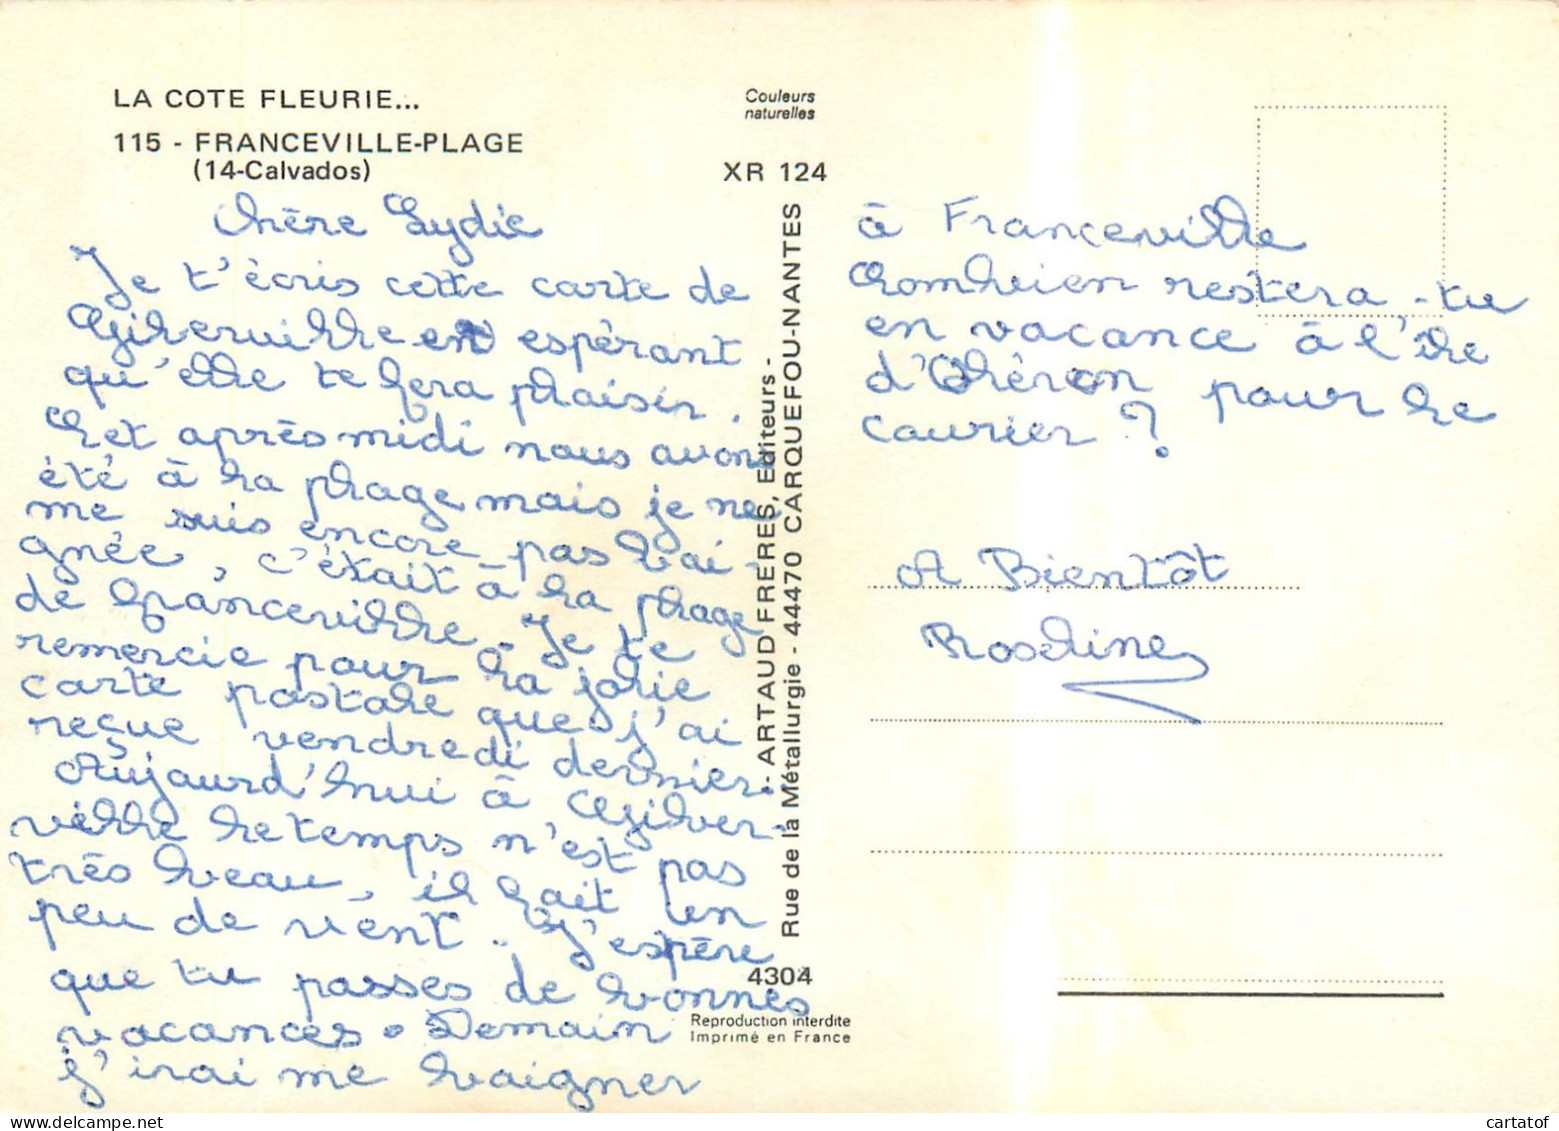 LA COTE FLEURIE...
115 - FRANCEVILLE-PLAGE
(14-Calvados)
Chère Lydie
Je t'écris cette carte de
Gilberville en espérant
qu'elle te fera plaisir.
Cet après midi nous avons
été à la plage mais je ne
me suis encore pas bai-
gnée, c'était à la plage
de Franceville. Je te
remercie pour la jolie
carte postale que j'ai
reçue vendredi dernier.
Aujourd'hui à Gilber-
ville le temps n'est pas
très beau, il fait un
peu de vent. J'espère
que tu passes de bonnes
vacances. Demain
j'irai me baigner
Couleurs
naturelles
XR 124
- ARTAUD FRERES, Editeurs -
Rue de la Métallurgie - 44470 CARQUEFOU-NANTES
4304
Reproduction interdite
Imprimé en France
à Franceville
Combien restera-tu
en vacance à l'île
d'Oléron pour le
courier ?
A Bientôt
Roseline
cartatof